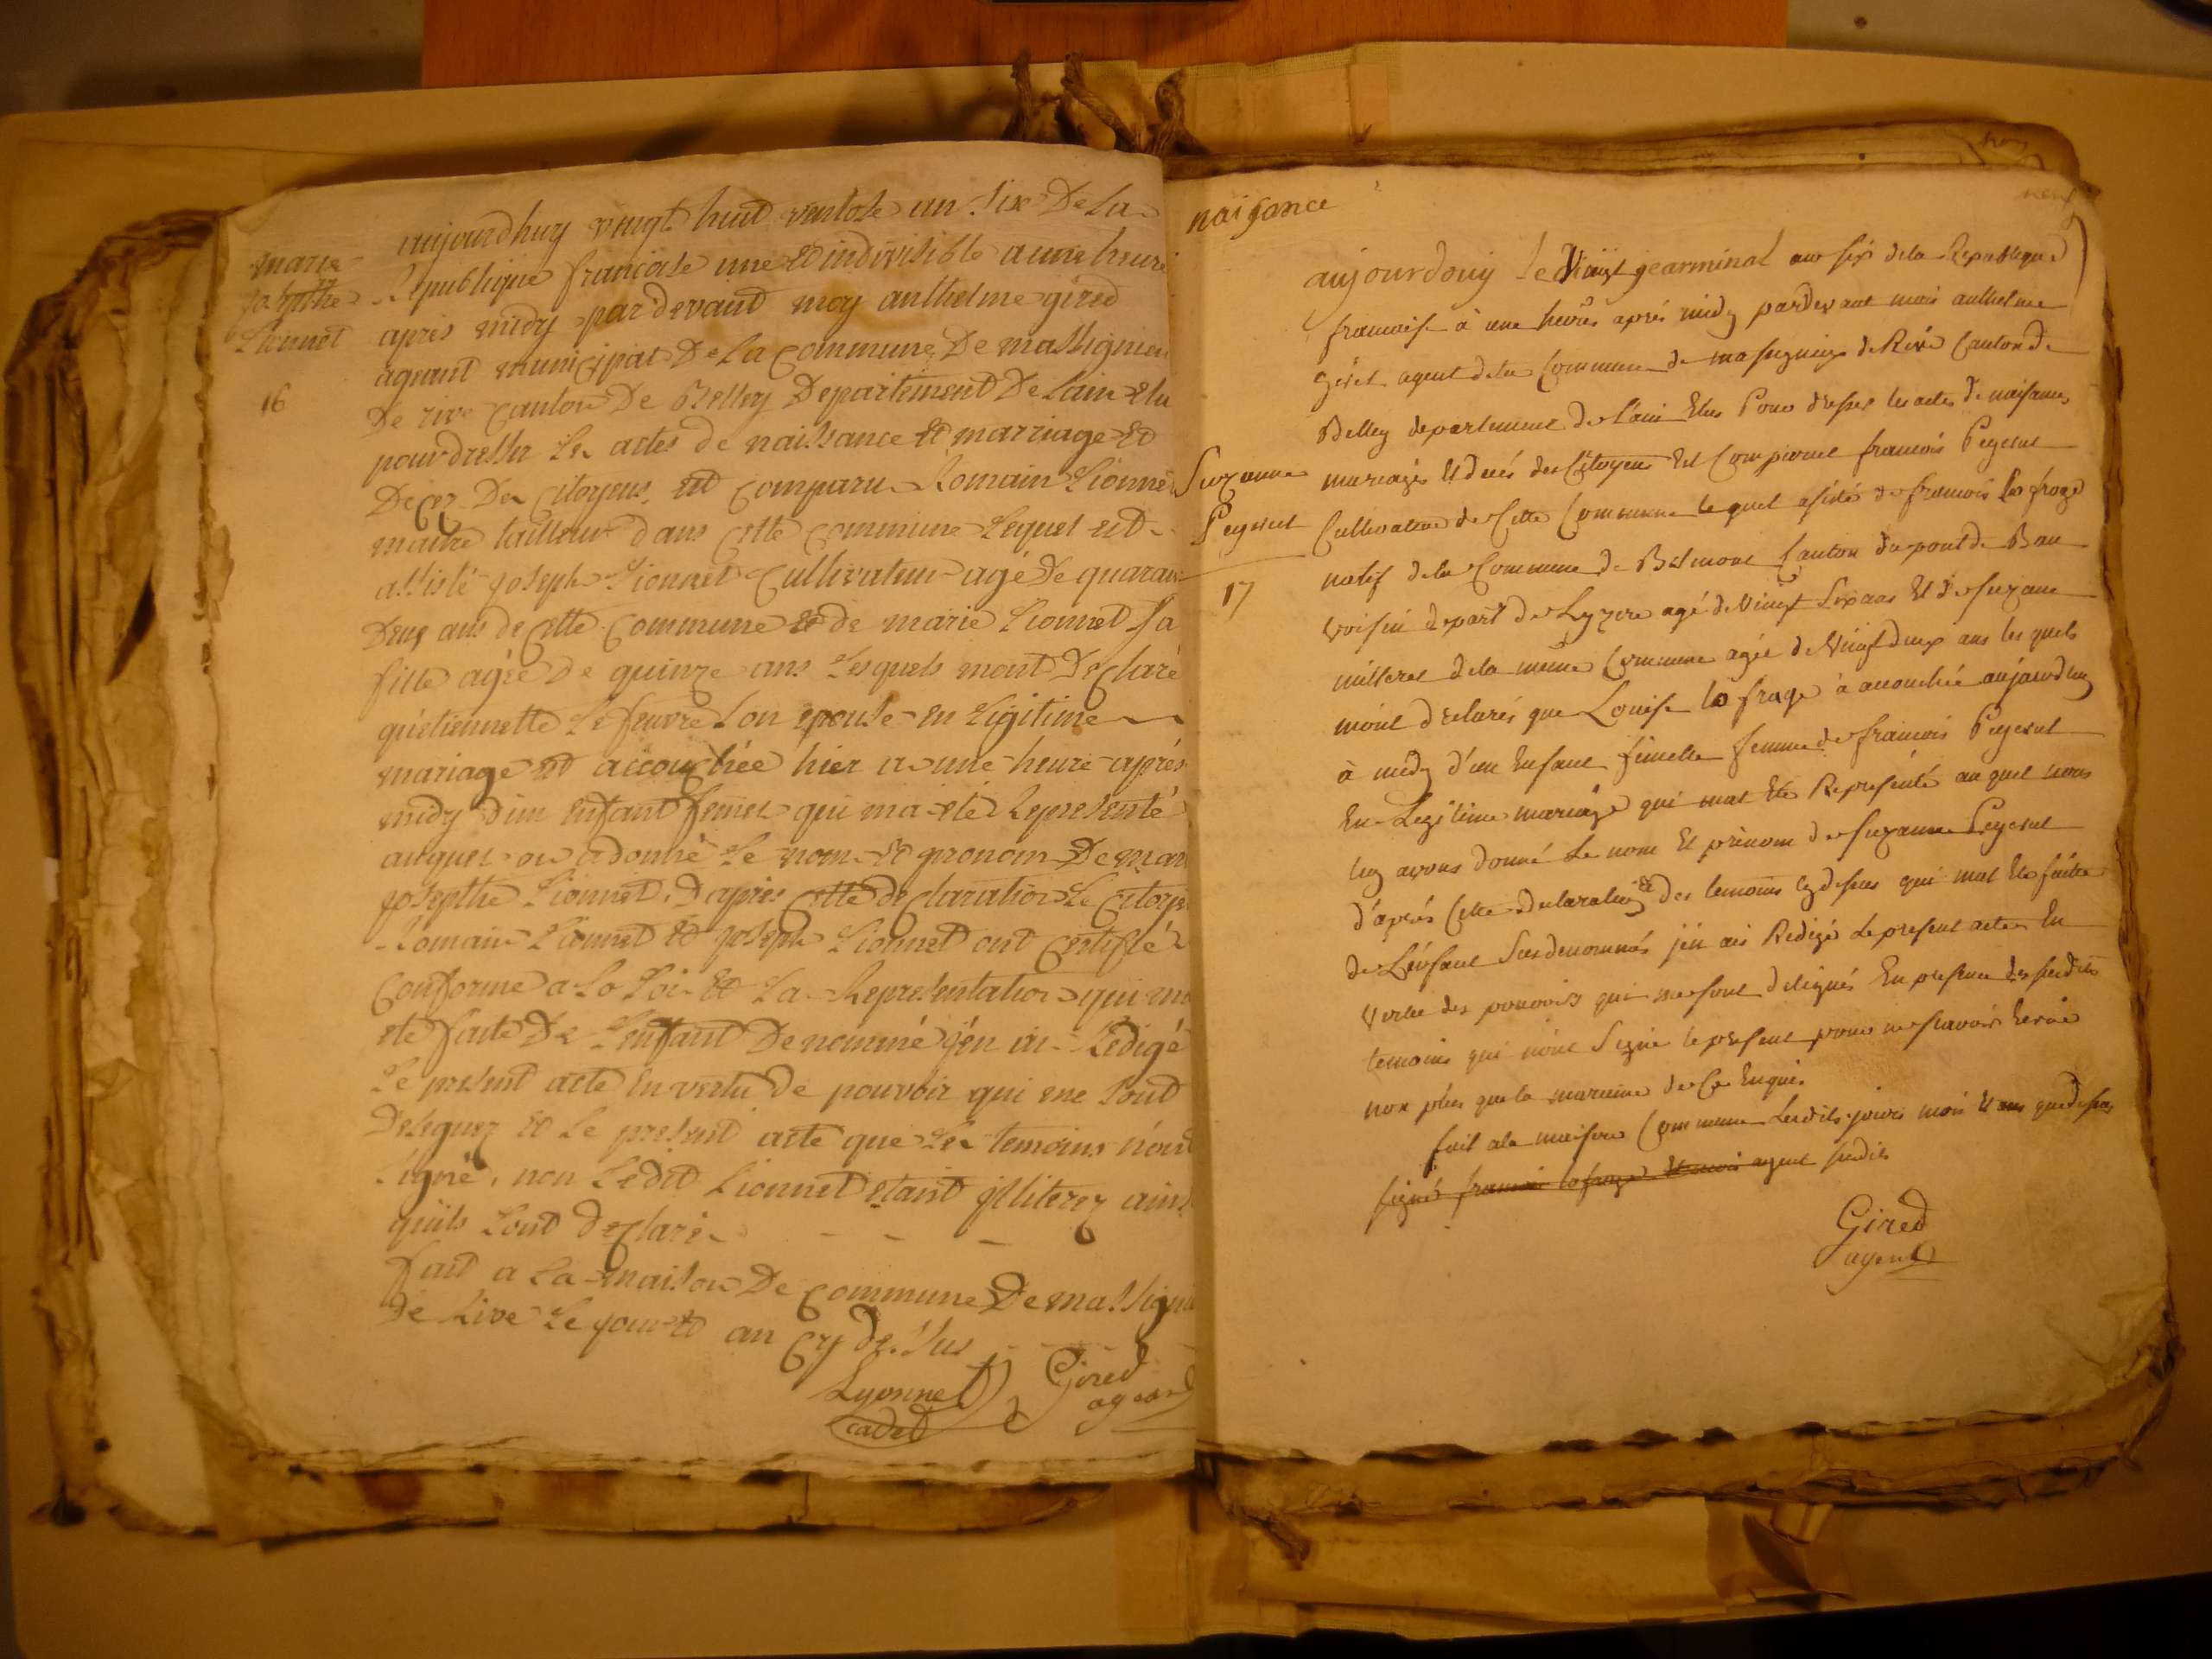 marie
josepthe
Lionnet
16
aujourdhuy vingt huit ventose an six De la
Republique francoise une et indivisible a une heure
apres midy par devant moy anthelme gired
agant municipal De la Commune De massignieu
De rive canton De Belley Departement De Lain elu
pour dresser Les actes de naissance et mariage et
Decez Des citoyens est comparu Romain Lionnet
maitre tailleur dans cette commune Lequel est
assisté joseph Lionnet cultivateur agé De quarante
Deux ans de cette Commune et de marie Lionnet sa
fille agée De quinze ans Lesquels mont Declaré
qu'etiennette Le feuvre son epouse en Ligitime
mariage est accouchée hier a une heure aprés
midy dun enfant femel qui ma eté Representé
auquel on a donné Le nom et pronom De mari
josepthe Lionnet. D apres cette declaration Le Citoyen
Romain Lionnet et joseph Lionnet ont certifié
Conforme a La Loi et La Representation qui ma
ete faite De Lenfant Denommé j'en ai Redigé
Le present acte en vertu de pouvoir qui me sont
Deleguez et Le present acte que Les temoins n'ont
signé, non Ledit Lionnet etant illiterez ainsi
quils Lont declaré
fait a La maison De commune De massignieu
de Rive Le jour et an cy dessus
Lyonnet
cadet
Gired
agean
naisance
Suzanne
Peyssut
17
aujourdouy le Vingt gearminal ans six dela Republique
francoise à une heure aprés midy pardevant mois anthelme
Giret agent dela Commune de masigneux de Rive Canton de
Belley departement de l'ain Elus Pour dresser les actes de naisance
mariages et decés des Citoyens Est Comparut francois Peysut
Cultivateur de Cette Commune lequel asisté de francois la frage
natif dela Commune de Belmont Canton du pont de Bau
voisin depart de Lyzere agé de Vingt six ans Et de suzane
milleret dela même Commune agée de Vingt deux ans les quels
mont declarés que Louise la frage à acouchée aujourdhuy
à midy d'un Enfant fémelle femme de francois Peysut
En Legitime mariage qui mat Ete Representé auquel nous
luy avons donné Le nom Et prénom de suzanne Peysut
d'aprés Cette declaration et des temoins cy desus qui mat Ete faitte
de Lénfant Susdenommés j'én ais Redigé Le present acte En
Vertu des pouvoirs qui me sont deligués En presence des susdits
temoins qui nónt Signé le present pour ne scavoir Ecrire
non plus que la marainne de Ce Enquis
fait ala maison Commune Lesdits jours mois et ans que desus
signés francois lafrage Et mois agent susdits
Gired
agent